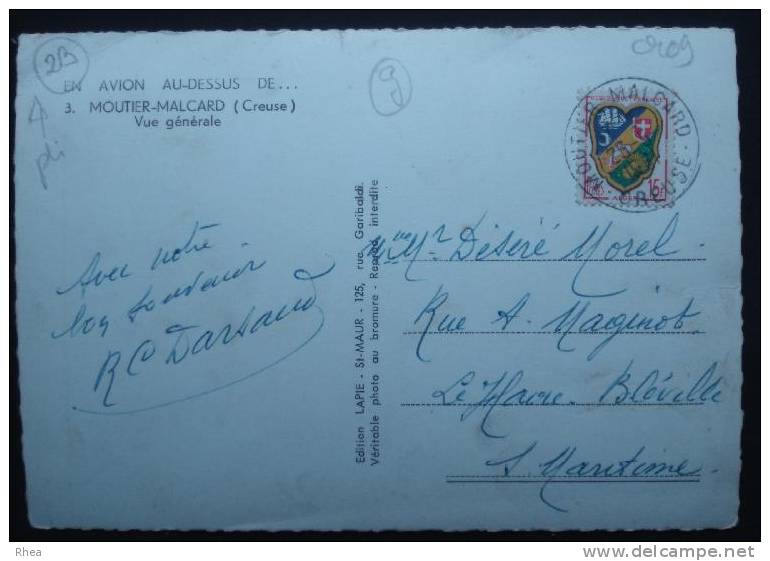 2B
cr09
EN AVION AU-DESSUS DE...
3. MOUTIER-MALCARD (Creuse)
Vue générale
pli
g
MOUTIER-MALCARD
CREUSE
15F
Avec notre
bon souvenir
RC Darsaud
Edition LAPIE - St-MAUR - 125, rue Garibaldi.
Véritable photo au bromure - Reprod. interdite
Mr Déséré Morel.
Rue A. Maginot.
Le Havre. Bléville
S. Maritime.
Rhea
www.delcampe.net